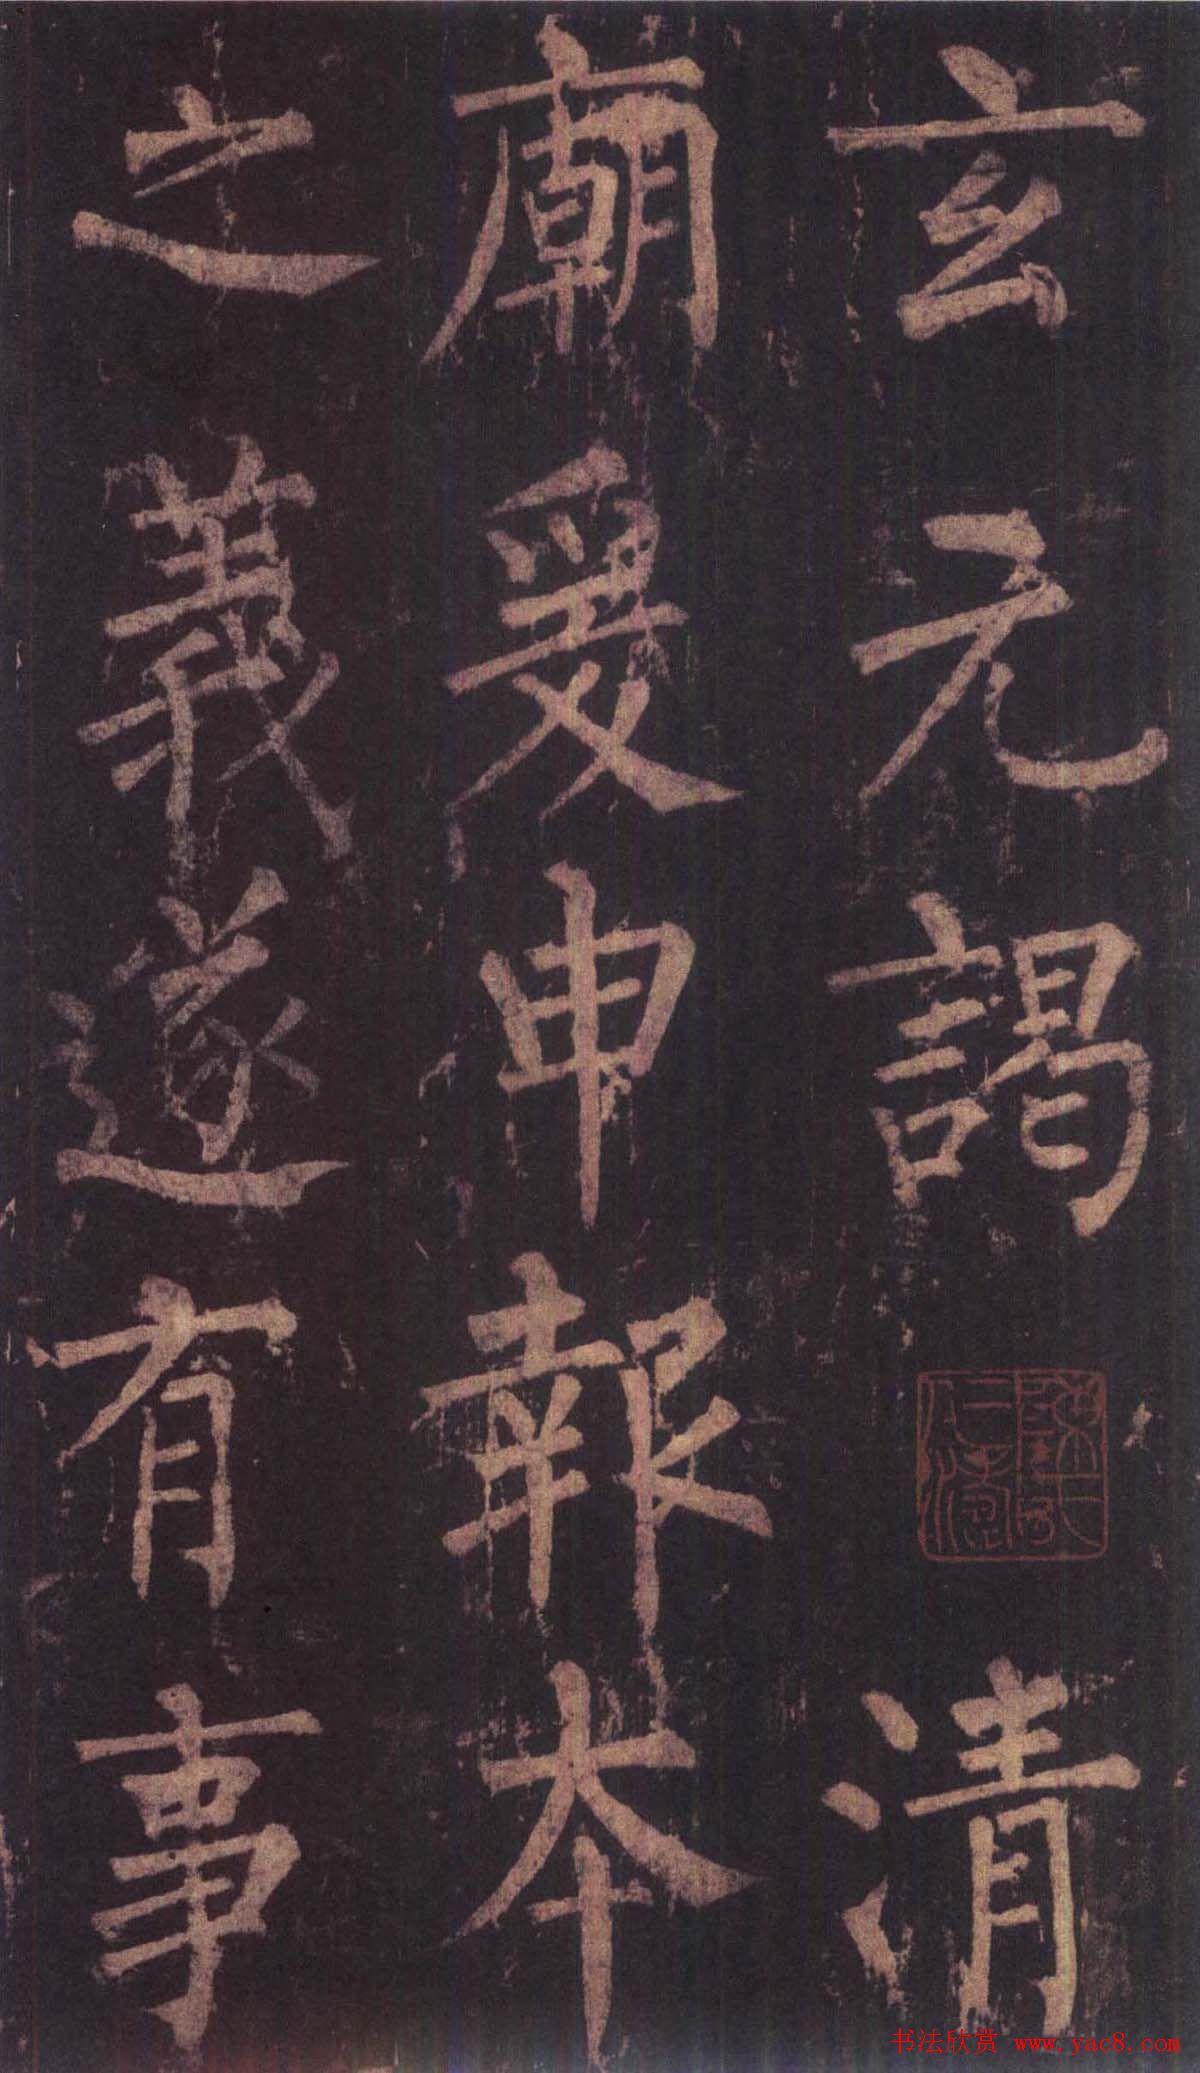 玄元謁清
廟爰申報本
之義遂有事
书法欣赏 www.yac8.com